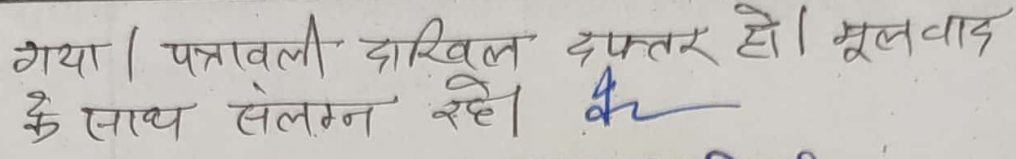 गया। पत्रावली दाखिल दफ्तर हो। मूलवाद
के साथ संलग्न रहे।